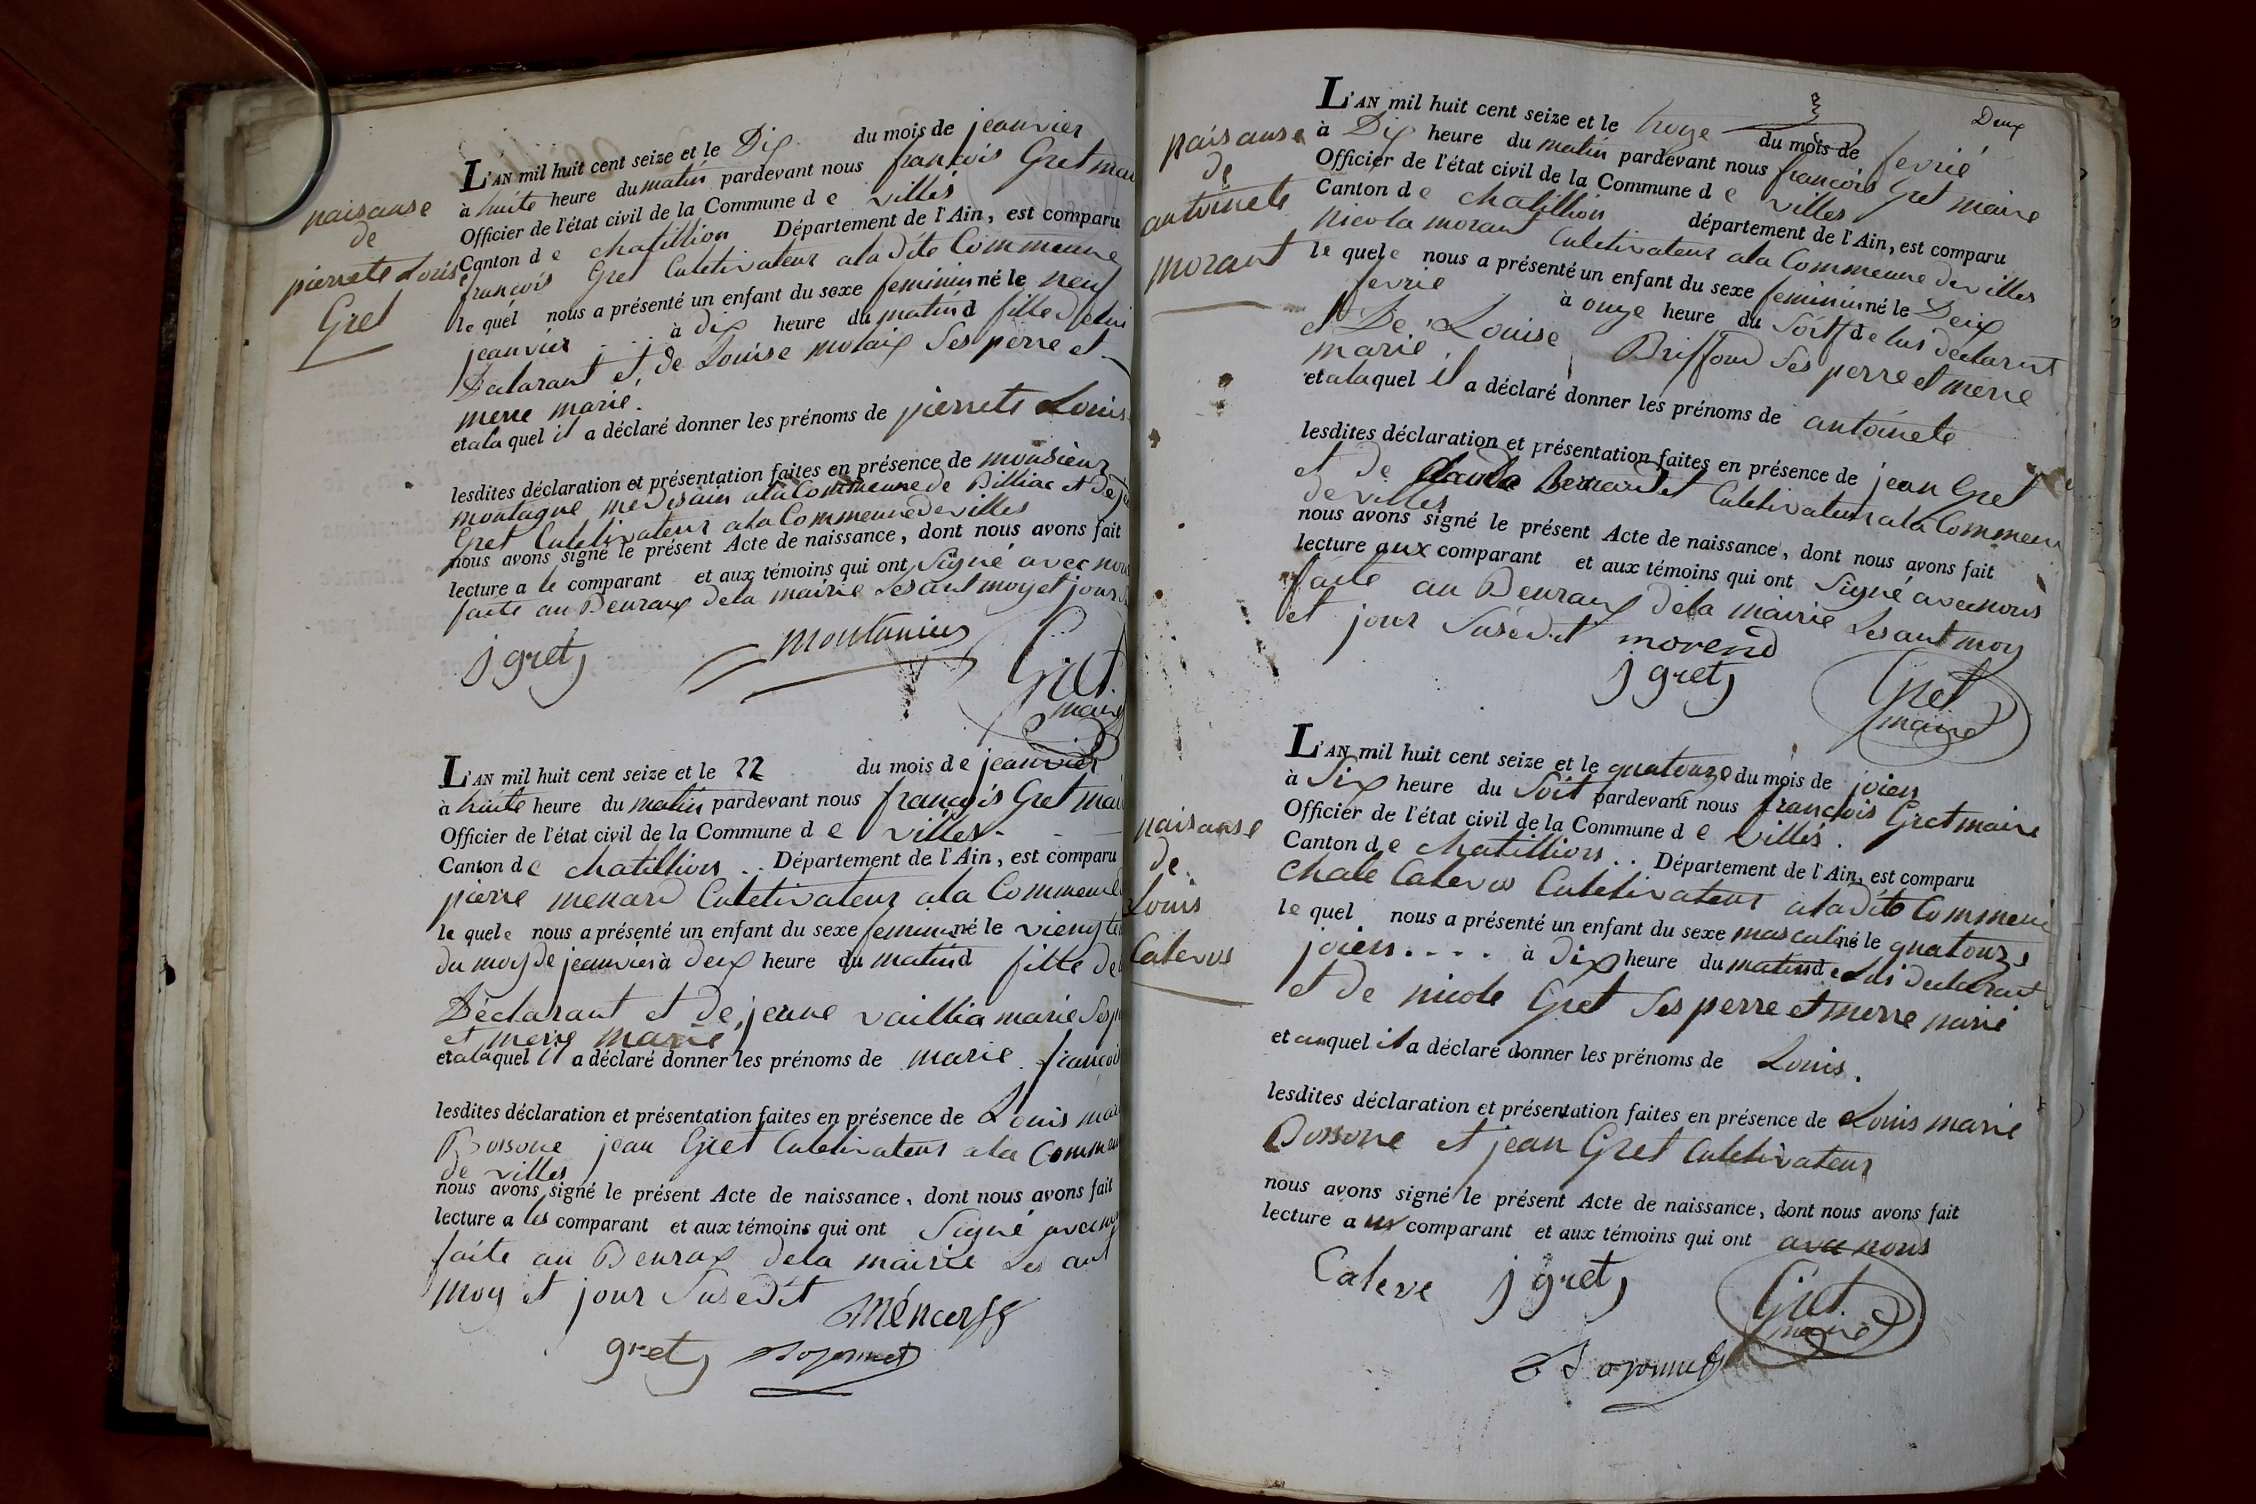 naisanse
de
pierrete Louise
Gret
L'AN mil huit cent seize et le Dix du mois de jeanvier
à huite heure du matin pardevant nous françois Gret mai
Officier de l'état civil de la Commune de villes
Canton de chatillion Département de l'Ain, est comparu
françois Gret Cultivateur aladite Commeune
le quel nous a présenté un enfant du sexe feminin né le neuf
jeanvier à dix heure du matin d fille delui
Declarant et de Louise molaix Ses perre et
merre marié.
et ala quel il a déclaré donner les prénoms de pierrete Louis
lesdites déclaration et présentation faites en présence de monsieur
montagne medisain ala Commeune de Billiac et de j
Gret Cultivateur ala Commeune de villes
nous avons signé le présent Acte de naissance, dont nous avons fait
lecture a le comparant et aux témoins qui ont Signé avec nous
faite au Beuraux dela mairie Les ant moy et jour
j gret
montanier
Gret
maire
L'AN mil huit cent seize et le 22 du mois de jeanvier
à huite heure du matin pardevant nous françois Gret mai
Officier de l'état civil de la Commune de villes
Canton de chatillion Département de l'Ain, est comparu
pierre menard Cultivateur ala Commeune
le quele nous a présenté un enfant du sexe feminin né le
du moy de jeanvier à deux heure du matin d fille de
Déclarant et de jeane vaillia marie Ses
et merre marié
et ala quel il a déclaré donner les prénoms de marie françoi
lesdites déclaration et présentation faites en présence de Louis mari
Bossone jean Gret Cultivateur ala Commeu
de villes
nous avons signé le présent Acte de naissance, dont nous avons fait
lecture a les comparant et aux témoins qui ont Signé avec
faite au Beurax dela mairie Les ant
moy et jour Susedit
gret
Deux
naisanse
de
antoinete
morant
L'AN mil huit cent seize et le honze du mois de fevrié
à Dix heure du matin pardevant nous françois Gret maire
Officier de l'état civil de la Commune de villes
Canton de chatillion département de l'Ain, est comparu
nicola morant Cultivateur ala Commeune de villes
le quele nous a présenté un enfant du sexe feminin né le Deix
fevrie à onze heure du Soit d de lui déclarent
et De Louise Briffoud Ses perre et merre
marié
et ala quel il a déclaré donner les prénoms de antoinete
lesdites déclaration et présentation faites en présence de jean Gret
et de Claude Bernardet Cultivateur ala Commeun
de villes
nous avons signé le présent Acte de naissance, dont nous avons fait
lecture aux comparant et aux témoins qui ont Signé avec nous
faite au Beuraux dela mairie Les ant moy
et jour Susedit
morend
j gret
Gret
maire
naisanse
de
Louis
Catevos
L'AN mil huit cent seize et le quatouze du mois de joien
à Six heure du Soit pardevant nous françois Gret maire
Officier de l'état civil de la Commune de villes.
Canton de chatillion Département de l'Ain, est comparu
Cultivateur aladite Commeune
le quel nous a présenté un enfant du sexe masculin né le quatouze
joien à dix heure du matin d e Lui declarant
et de nicole Gret Ses perre et merre marié
et auquel il a déclaré donner les prénoms de Louis.
lesdites déclaration et présentation faites en présence de Louis marie
Bossone et jean Gret Cultivateur
nous avons signé le présent Acte de naissance, dont nous avons fait
lecture a comparant et aux témoins qui ont avec nous
Cateve
j gret
Gret
maire